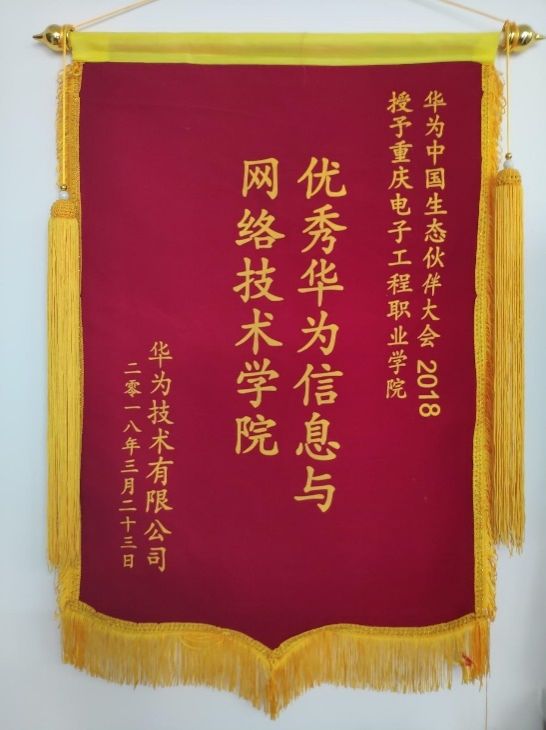 华为中国生态伙伴大会 2018
授予重庆电子工程职业学院
优秀华为信息与
网络技术学院
华为技术有限公司
二零一八年三月二十三日